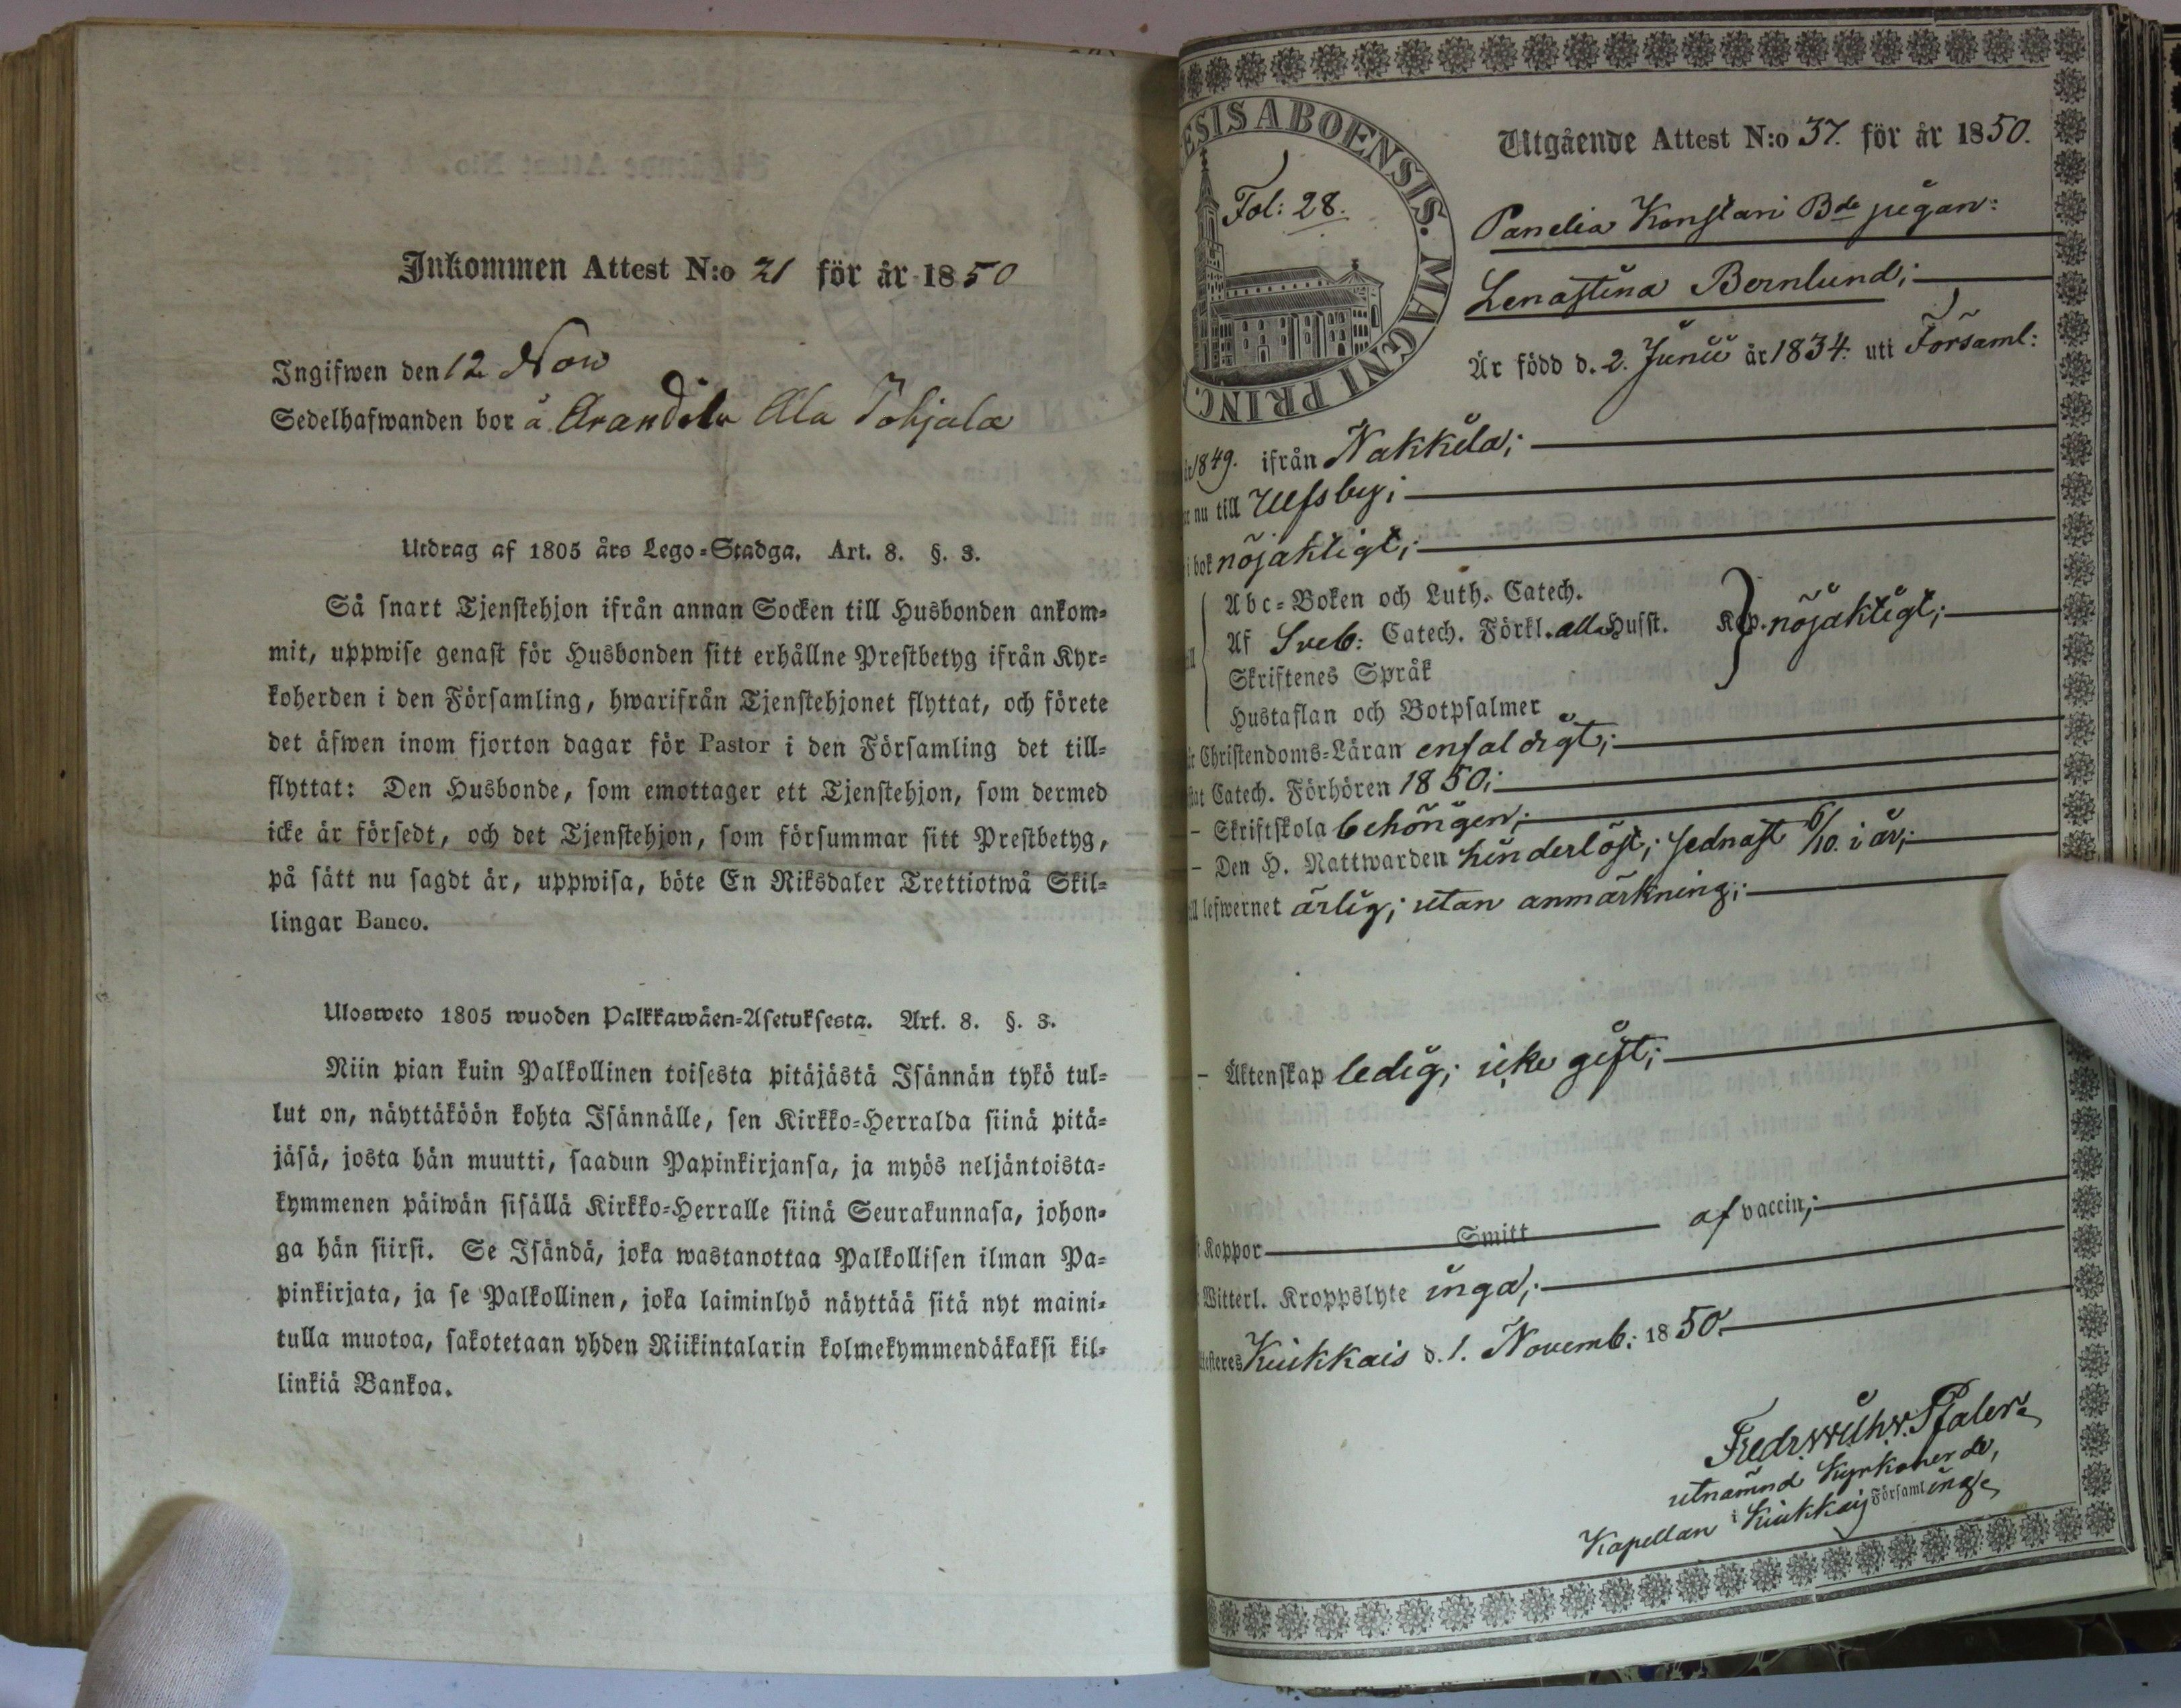 Inkommen Attest N:o 21 för år 1850
Ingifwen den 12 Nov
Sedelhafwanden bor å Arandila Ala Pohjala
Utdrag af 1805 års Lego-Stadga. Art. 8. §. 3.
Så snart Tjenstehjon ifrån annan Socken till Husbonden ankom-
mit, uppwise genast för Husbonden sitt erhållne Prestbetyg ifrån Kyr-
koherden i den Församling, hwarifrån Tjenstehjonet flyttat, och förete
det äfwen inom fjorton dagar för Pastor i den Församling det till-
flyttat: Den Husbonde, som emottager ett Tjenstehjon, som dermed
icke är försedt, och det Tjenstehjon, som försummar sitt Prestbetyg,
på sätt nu sagdt är, uppwisa, böte En Riksdaler Trettiotwå Skil-
lingar Banco.
Ulosweto 1805 wuoden Palkkawäen-Asetuksesta. Art. 8. §. 3.
Niin pian kuin Palkollinen toisesta pitäjästä Isännän tykö tul-
lut on, näyttäköön kohta Isännälle, sen Kirkko-Herralda siinä pitä-
jäsä, josta hän muutti, saadun Papinkirjansa, ja myös neljäntoista-
kymmenen päiwän sisällä Kirkko-Herralle siinä Seurakunnasa, johon-
ga hän siirsi. Se Isändä, joka wastanottaa Palkollisen ilman Pa-
pinkirjata, ja se Palkollinen, joka laiminlyö näyttää sitä nyt maini-
tulla muotoa, sakotetaan yhden Riikintalarin kolmekymmendäkaksi kil-
linkiä Bankoa.
ESIS ABOENSIS. MAGNI PRINC.
Fol: 28.
Utgående Attest N:o 37. för år 1850.
Panelia Konstari Bde pigan:
Lenastina Bernlund;
Är född d. 2. Junii år 1834. uti Församl:
år 1849. ifrån Nakkila;
nu till Ulfsby;
i bok nöjaktigt;
Abc-Boken och Luth. Catech.
Af Sveb: Catech. Förkl. alla Husst. Kap. nöjaktigt;
Skriftenes Språk
Hustaflan och Botpsalmer
Christendoms-Läran enfaldigt;
Catech. Förhören 1850;
– Skriftskola behörigen;
– Den H. Nattwarden hinderlöst; sednast 6/10. i år;
lefwernet ärlig; utan anmärkning;
– Äktenskap ledig; icke gift;
Koppor Smitt af vaccin;
Witterl. Kroppslyte inga;
Kiukkais d. 1. Novemb: 1850.
Fredr. Wilh. Pfaler
utnämnd Kyrkoherde,
Kapellan i Kiukkais Församling